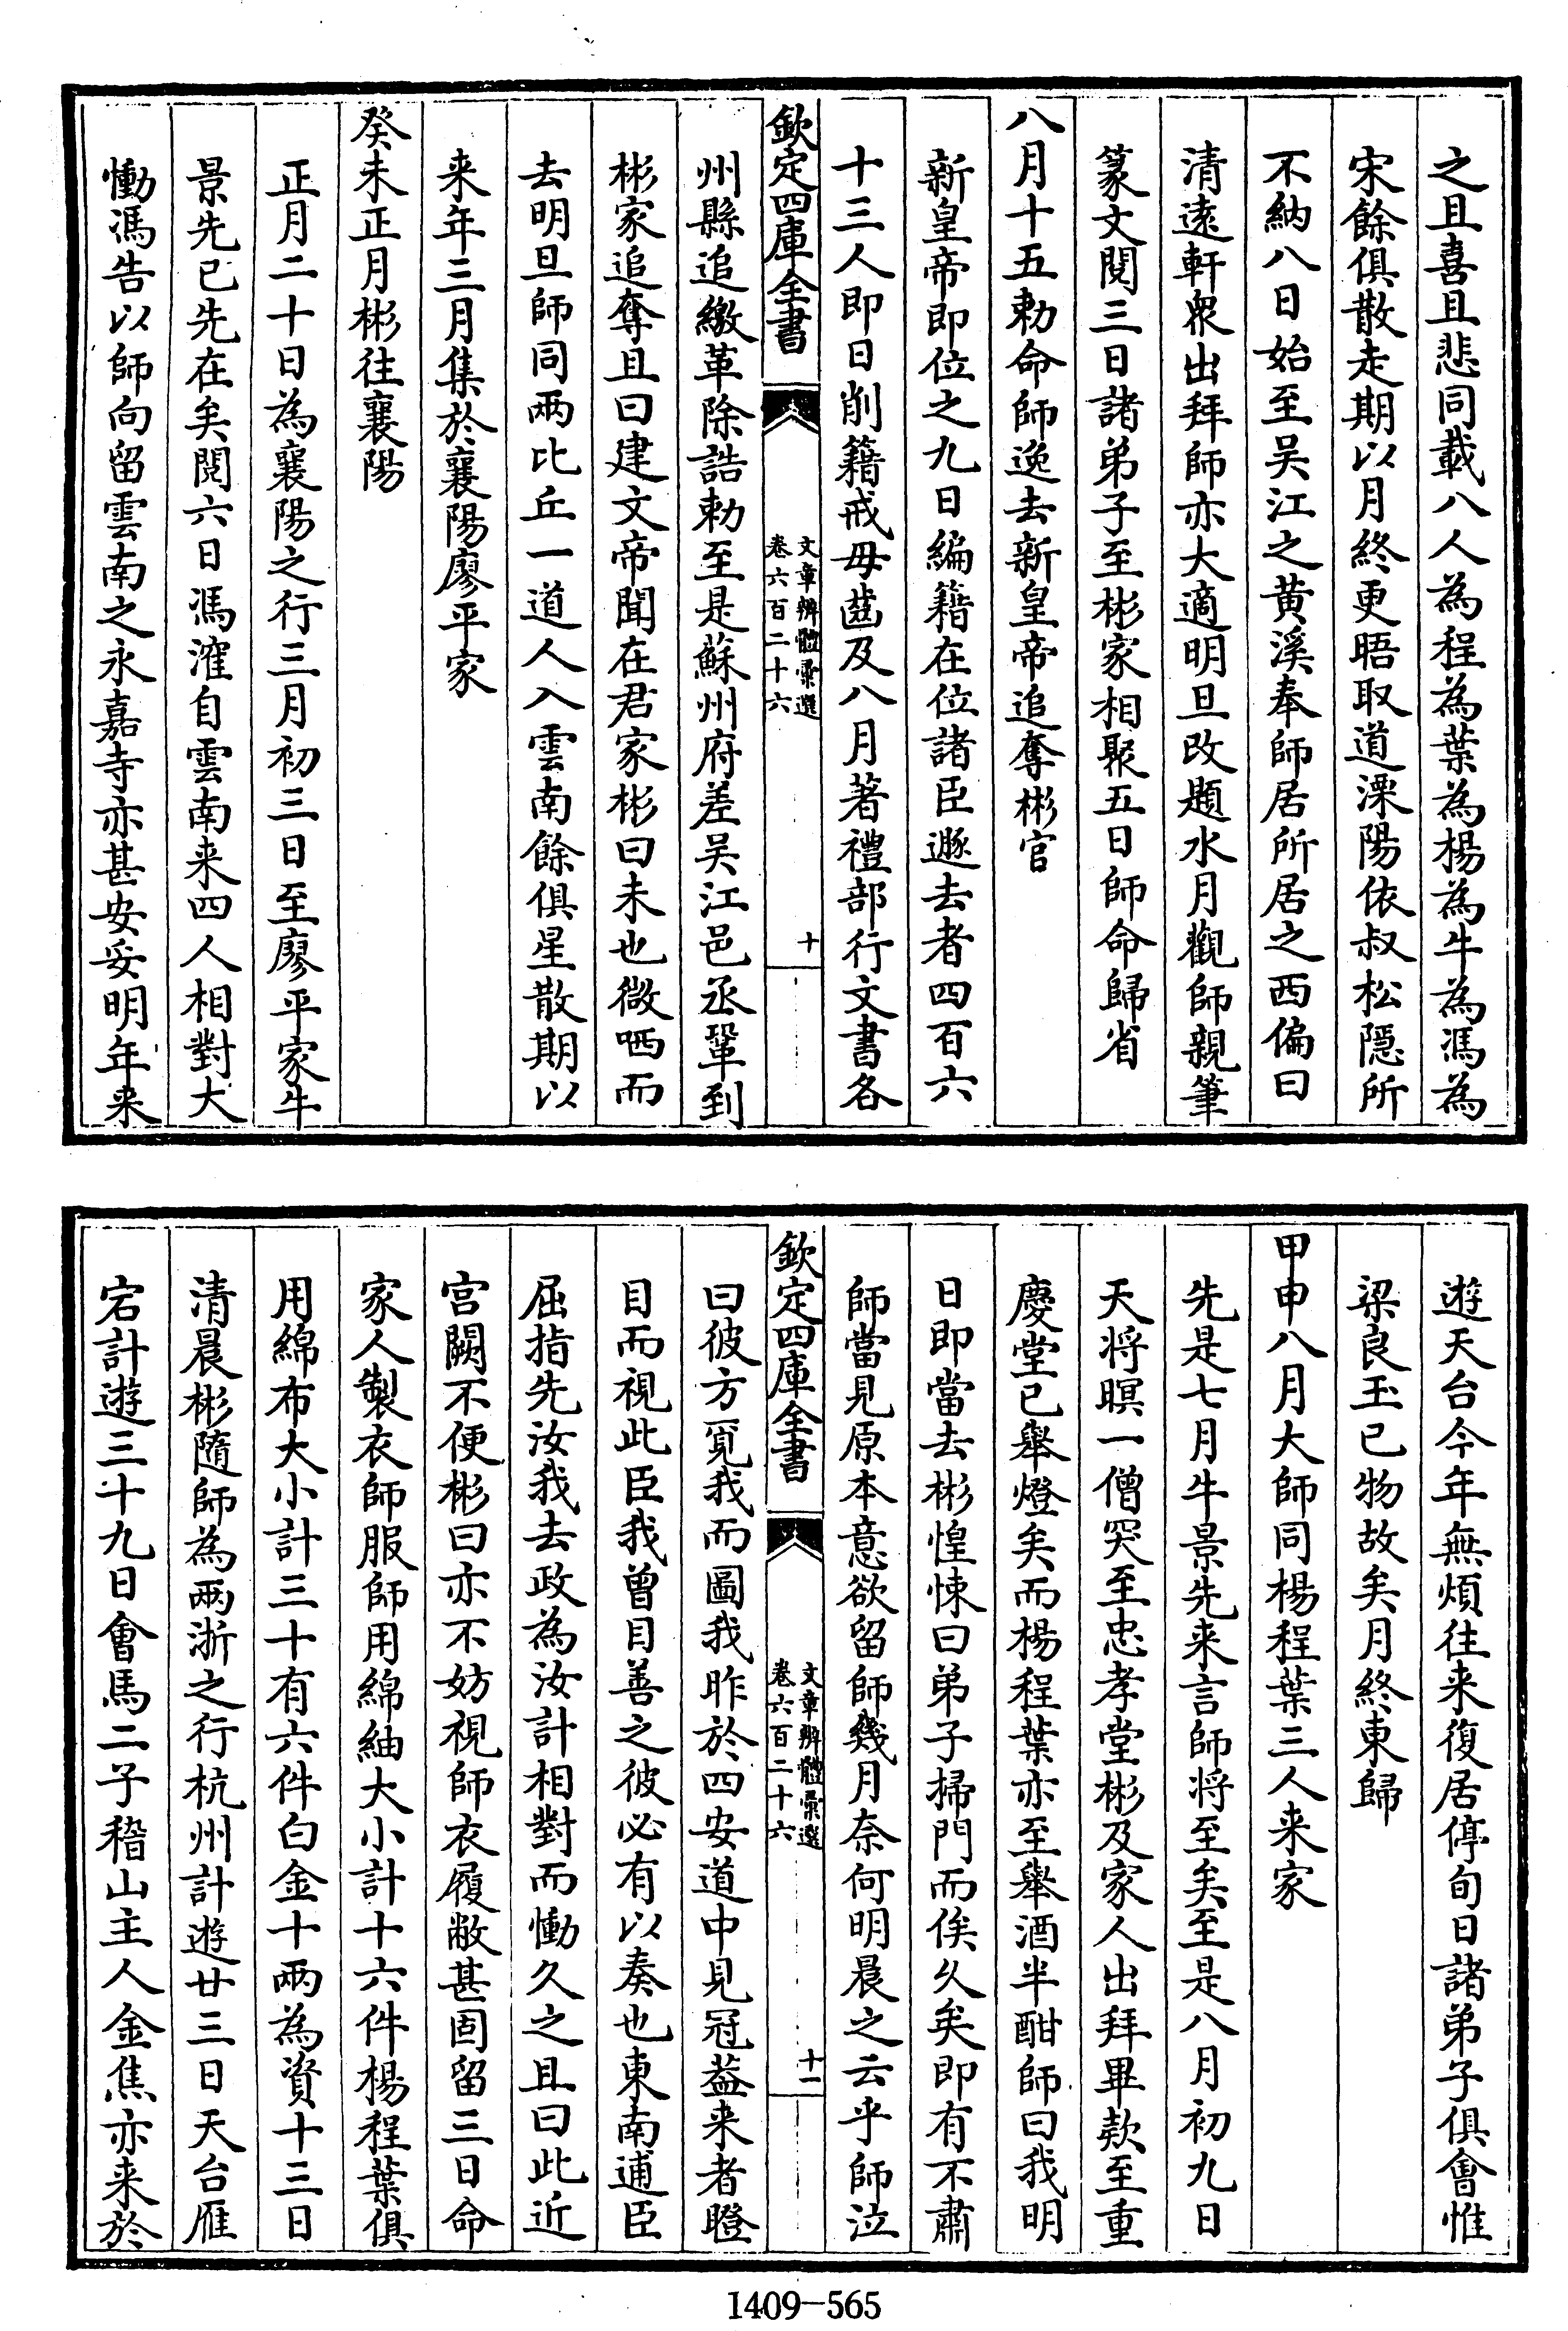 之且喜且悲同載八人為程為葉為楊為牛為馮為
宋餘俱散走期以月終更晤取道溧陽依叔松隱所
不納八日始至吴江之黄溪奉師居所居之西偏曰
清遠軒衆出拜師亦大適明旦改題水月觀師親筆
篆文閱三日諸弟子至彬家相聚五日師命歸省
八月十五勅命師逸去新皇帝追奪彬官
新皇帝即位之九日編籍在位諸臣遯去者四百六
十三人即日削籍戒毋齒及八月著禮部行文書各
欽定四庫全書
文章辨體彙選
卷六百二十六
十
州縣追繳革除誥勅至是蘇州府差吴江邑丞鞏到
彬家追奪且曰建文帝聞在君家彬曰未也微哂而
去明旦師同兩比丘一道人入雲南餘俱星散期以
来年三月集於襄陽廖平家
癸未正月彬往襄陽
正月二十日為襄陽之行三月初三日至廖平家牛
景先已先在矣閱六日馮㴶自雲南来四人相對大
慟馮告以師向留雲南之永嘉寺亦甚安妥明年来
遊天台今年無煩往来復居停旬日諸弟子俱會惟
梁良玉已物故矣月終東歸
甲申八月大師同楊程葉三人来家
先是七月牛景先来言師将至矣至是八月初九日
天将暝一僧突至忠孝堂彬及家人出拜畢欵至重
慶堂已舉燈矣而楊程葉亦至舉酒半酣師曰我明
日即當去彬惶悚曰弟子掃門而俟久矣即有不肅
師當見原本意欲留師幾月奈何明晨之云乎師泣
欽定四庫全書
文章辨體彙選
卷六百二十六
十一
曰彼方覓我而圖我昨於四安道中見冠葢来者瞪
目而視此臣我曽目善之彼必有以奏也東南逋臣
屈指先汝我去政為汝計相對而慟久之且曰此近
宫闕不便彬曰亦不妨視師衣履敝甚固留三日命
家人製衣師服師用綿紬大小計十六件楊程葉俱
用綿布大小計三十有六件白金十兩為資十三日
清晨彬隨師為兩浙之行杭州計遊廿三日天台雁
宕計遊三十九日會馬二子稽山主人金焦亦来於
1409-565